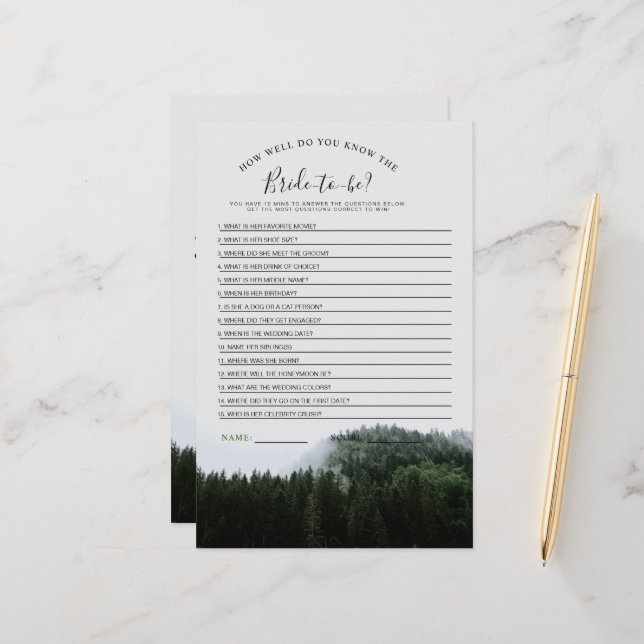 HOW WELL DO YOU KNOW THE
Bride-to-be?
YOU HAVE 10 MINS TO ANSWER THE QUESTIONS BELOW.
GET THE MOST QUESTIONS CORRECT TO WIN!
1. WHAT IS HER FAVORITE MOVIE?
2. WHAT IS HER SHOE SIZE?
3. WHERE DID SHE MEET THE GROOM?
4. WHAT IS HER DRINK OF CHOICE?
5. WHAT IS HER MIDDLE NAME?
6. WHEN IS HER BIRTHDAY?
7. IS SHE A DOG OR A CAT PERSON?
8. WHERE DID THEY GET ENGAGED?
9. WHEN IS THE WEDDING DATE?
10. NAME HER SIBLING(S)
11. WHERE WAS SHE BORN?
12. WHERE WILL THE HONEYMOON BE?
13. WHAT ARE THE WEDDING COLORS?
14. WHERE DID THEY GO ON THE FIRST DATE?
15. WHO IS HER CELEBRITY CRUSH?
NAME: SCORE: